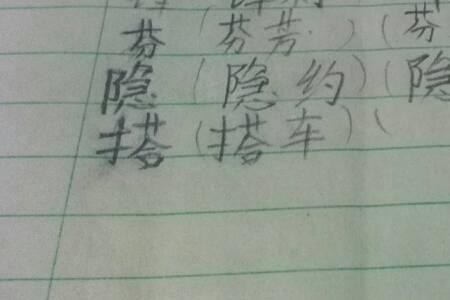 芬（芬芳）（芬
隐（隐约）（隐
搭（搭车）（